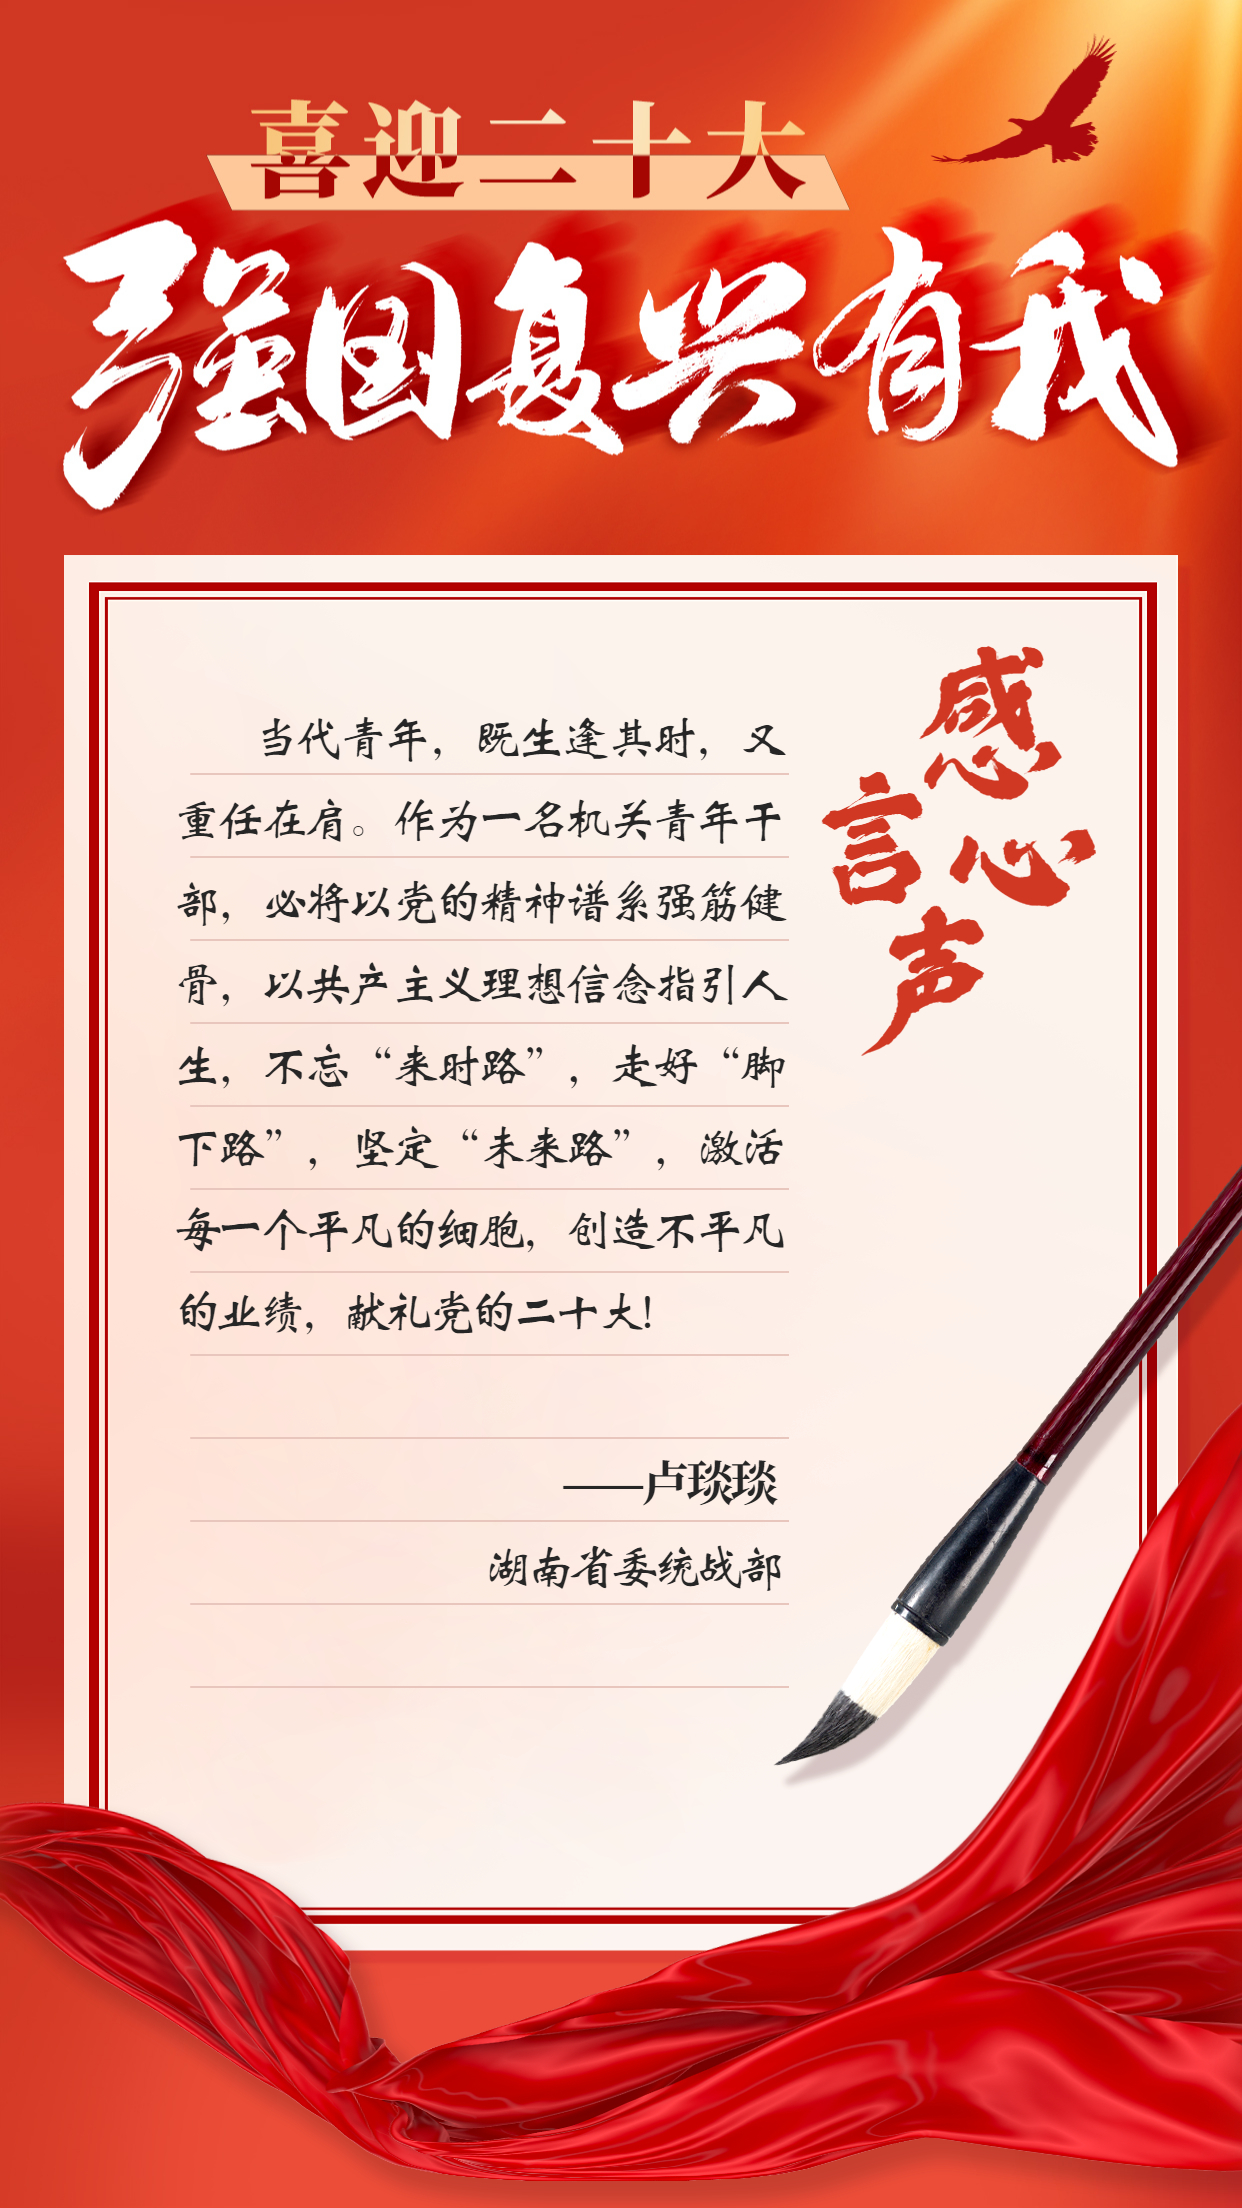 喜迎二十大
强国复兴有我
感言心声
当代青年，既生逢其时，又
重任在肩。作为一名机关青年干
部，必将以党的精神谱系强筋健
骨，以共产主义理想信念指引人
生，不忘“来时路”，走好“脚
下路”，坚定“未来路”，激活
每一个平凡的细胞，创造不平凡
的业绩，献礼党的二十大！
——卢琰琰
湖南省委统战部